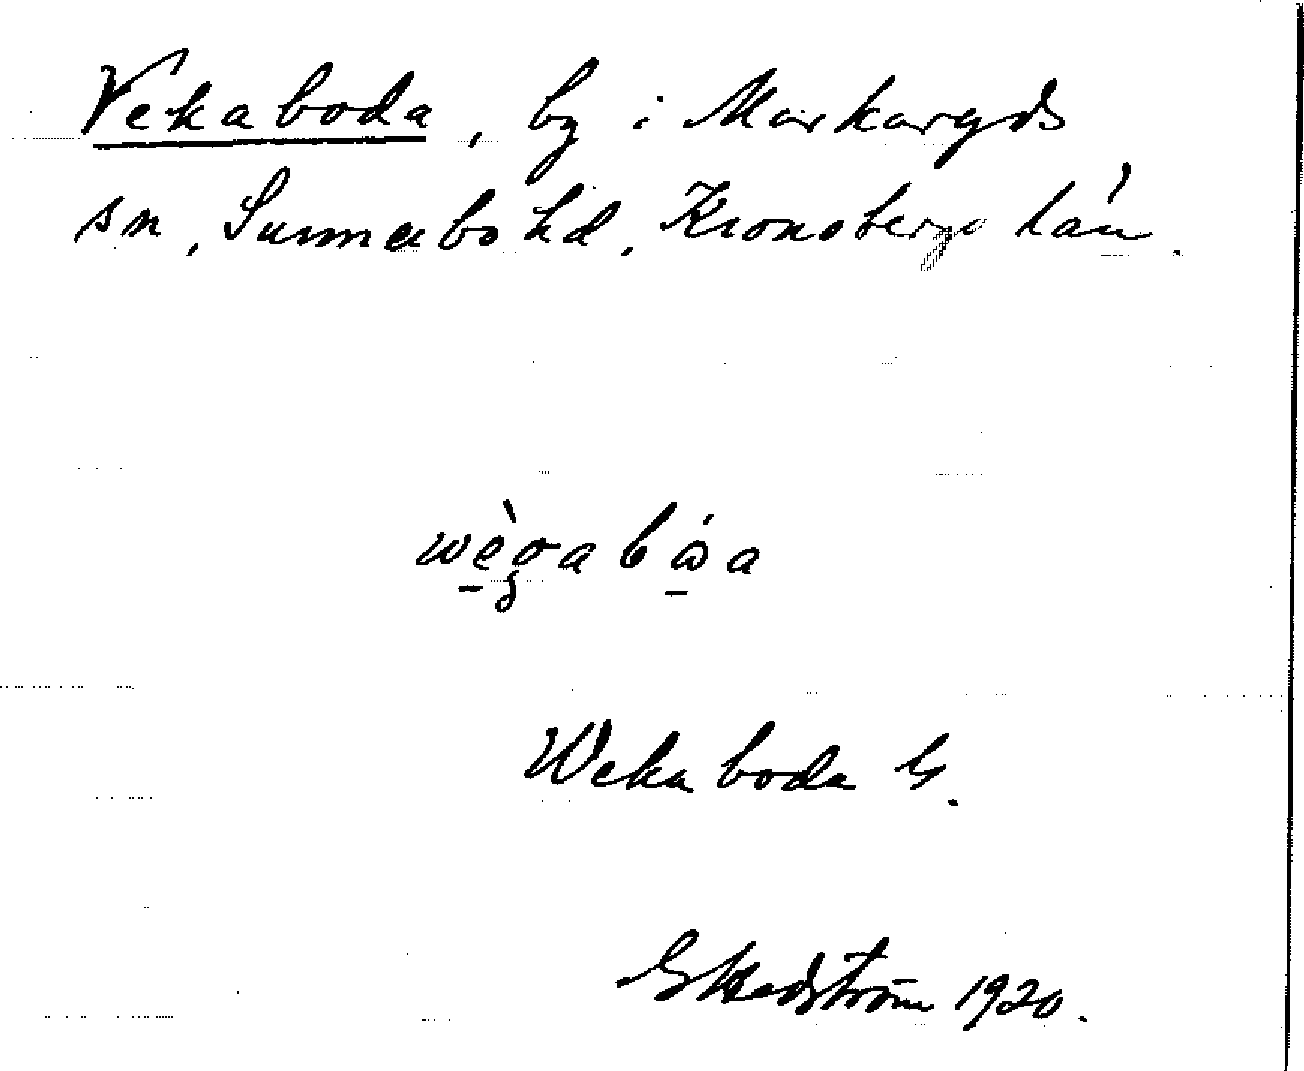 Vekaboda, by i Markaryds
sn, Sunnerbo hd, Kronobergs län.
Wekaboda G.
G Hedström 1920.